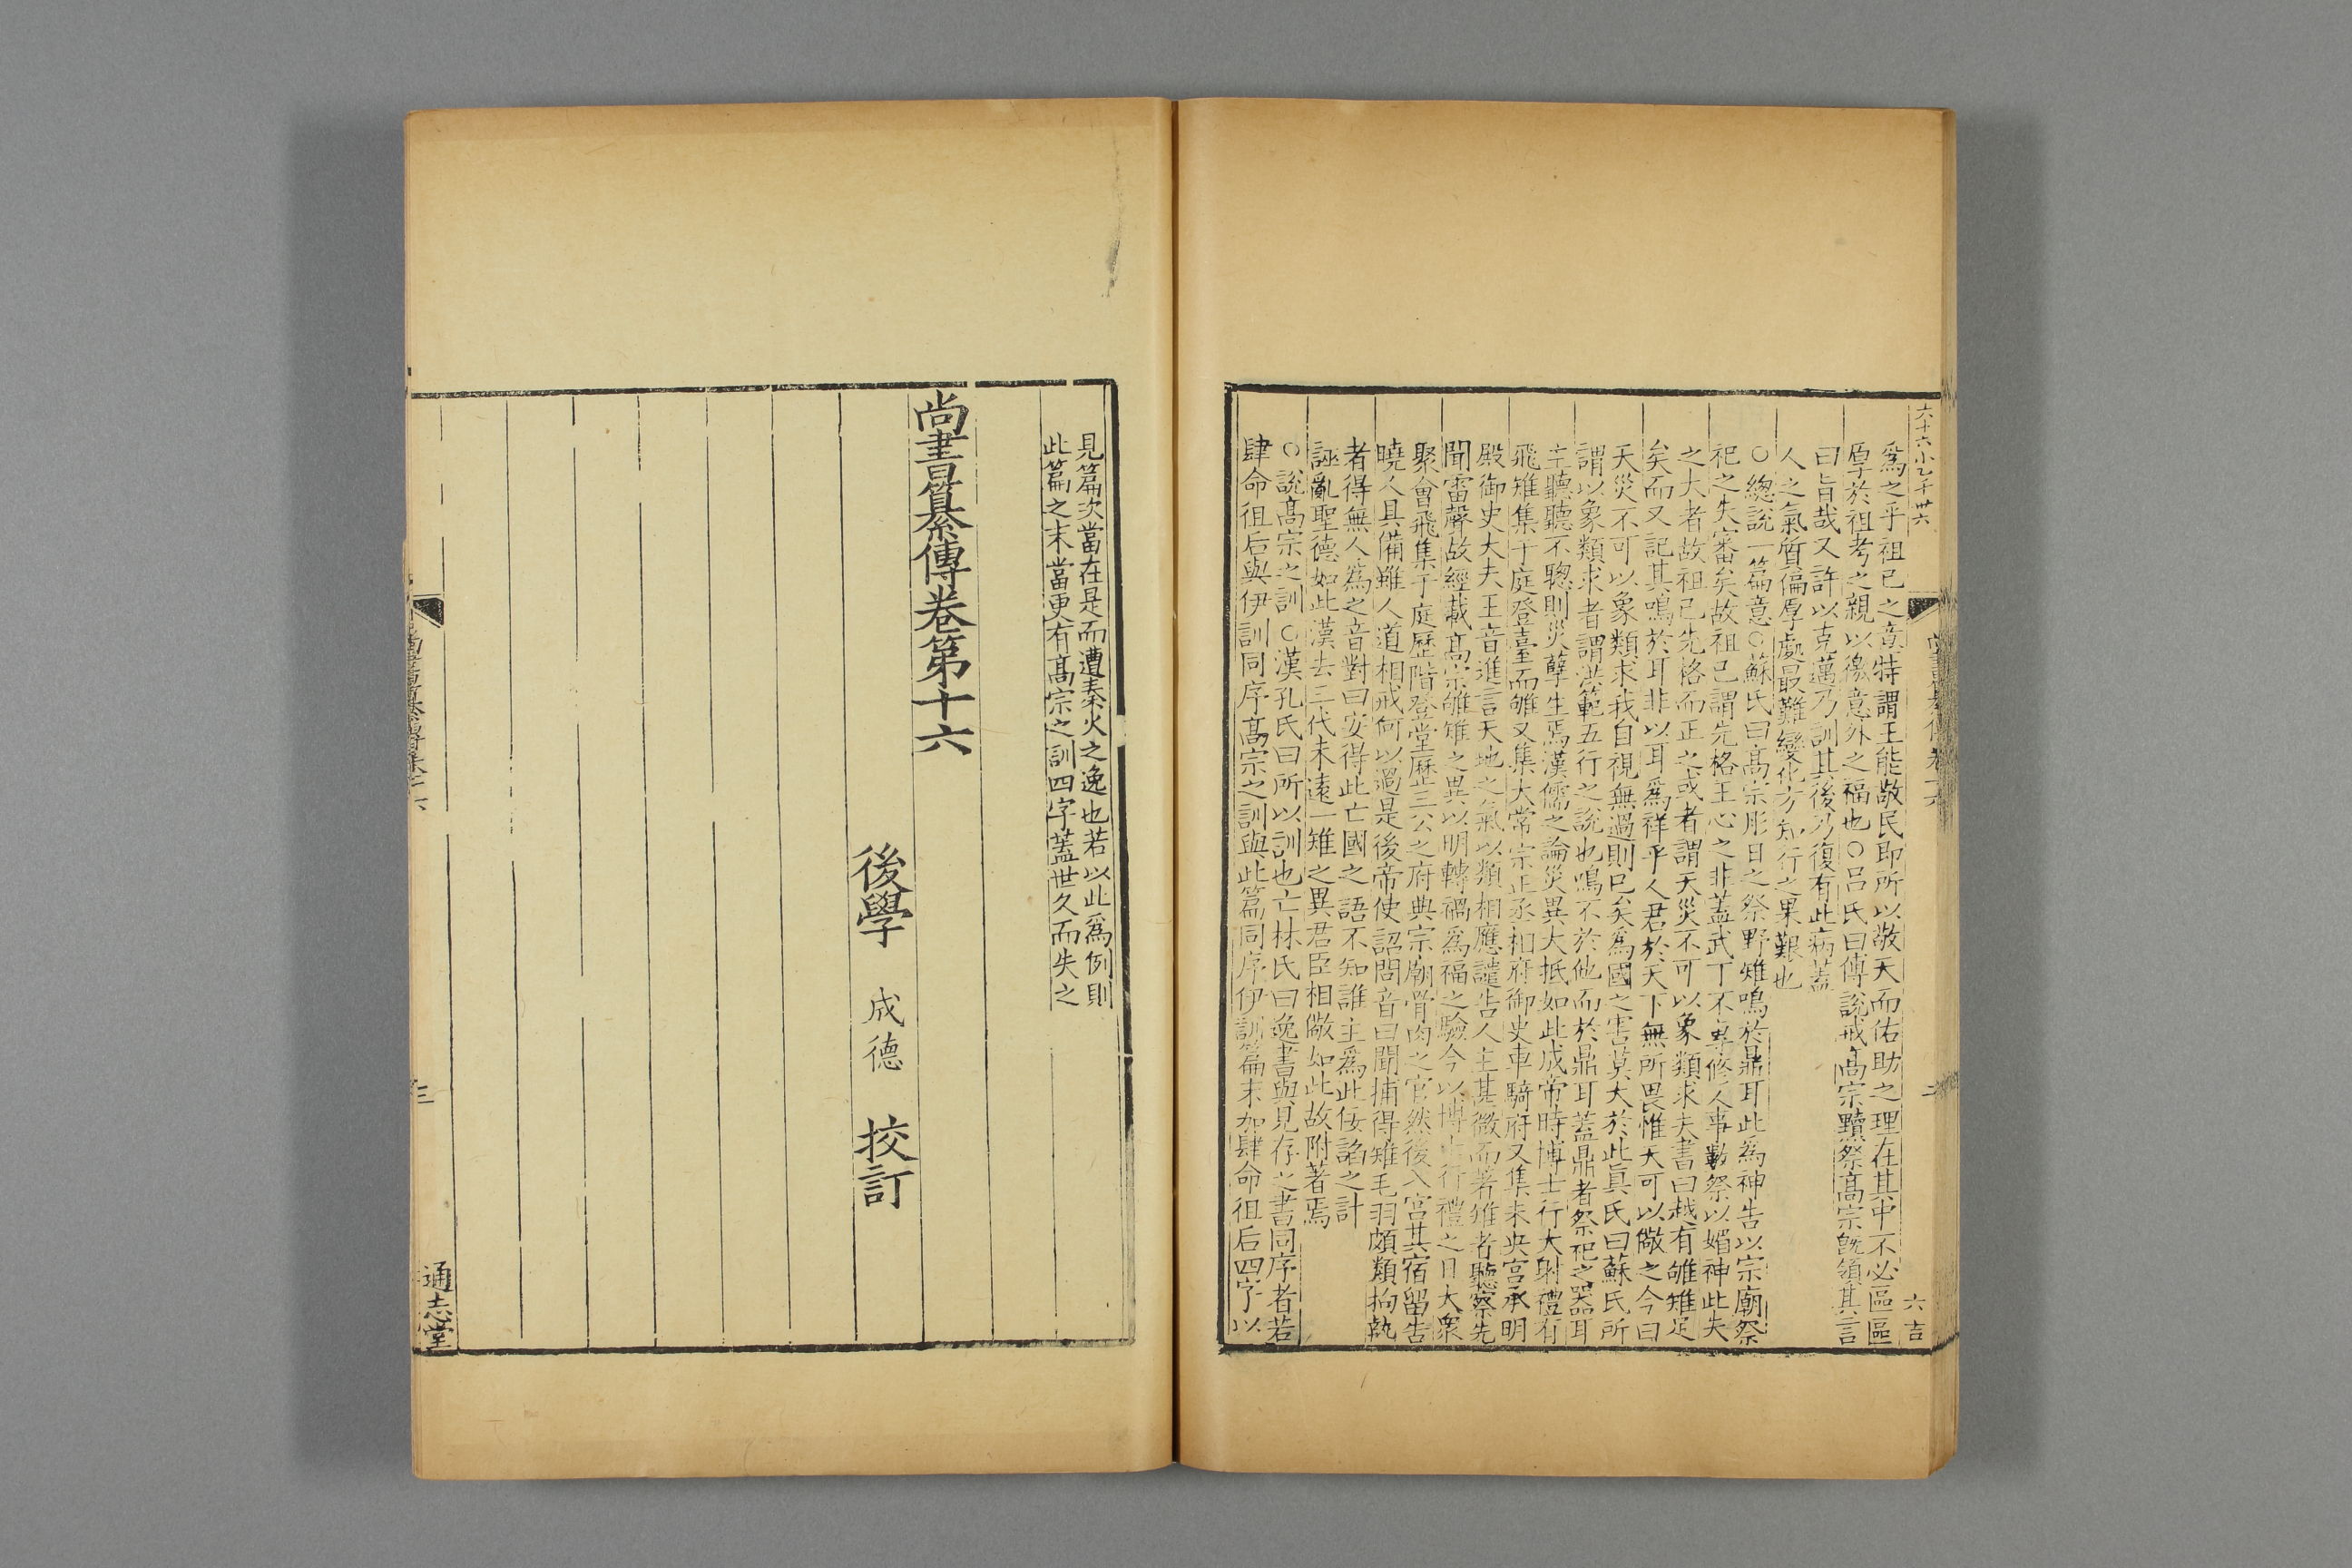 爲之乎祖已之意特謂王能敬民即所以敬天而佑助之理在其中不必區區
厚於祖考之親以徼意外之福也○呂氏曰傅說戒高宗黷祭高宗旣領其言
曰旨哉又許以克邁乃訓其後乃復有此病蓋
人之氣質偏厚處最難變化方知行之果艱也
○總說一篇意○蘇氏曰高宗肜日之祭野雉鳴於鼎耳此爲神告以宗廟祭
祀之失審矣故祖已謂先格王心之非蓋武丁不專修人事數祭以媚神此失
之大者故祖已先格而正之或者謂天災不可以象類求夫書曰越有雊雉足
矣而又記其鳴於耳非以耳爲祥乎人君於天下無所畏惟天可以儆之今曰
天災不可以象類求我自視無過則已矣爲國之害莫大於此眞氏曰蘇氏所
謂以象類求者謂洪範五行之說也鳴不於他而於鼎耳蓋鼎者祭祀之器耳
主聽聽不聰則災孽生焉漢儒之論災異大抵如此成帝時博士行大射禮有
飛雉集于庭登臺而雊又集大常宗正丞相府御史車騎府又集未央宮承明
殿御史大夫王音進言天地之氣以類相應譴告人主甚微而著雉者聽察先
聞雷聲故經載高宗雊雉之異以明轉禍爲福之驗今以博士行禮之日大衆
聚會飛集于庭歷階登堂歷三公之府典宗廟骨肉之官然後入宮其宿留告
曉人具備雖人道相戒何以過是後帝使詔問音曰聞捕得雉毛羽頗類拘執
者得無人爲之音對曰安得此亡國之語不知誰主爲此佞諂之計
誣亂聖德如此漢去三代未遠一雉之異君臣相儆如此故附著焉
○說高宗之訓○漢孔氏曰所以訓也亡林氏曰逸書與見存之書同序者若
肆命徂后與伊訓同序高宗之訓與此篇同序伊訓篇末加肆命徂后四字以
六吉
見篇次當在是而遭秦火之逸也若以此爲例則
此篇之末當更有高宗之訓四字蓋世久而失之
尚書纂傳卷第十六
後學 成德 挍訂
三
通志堂